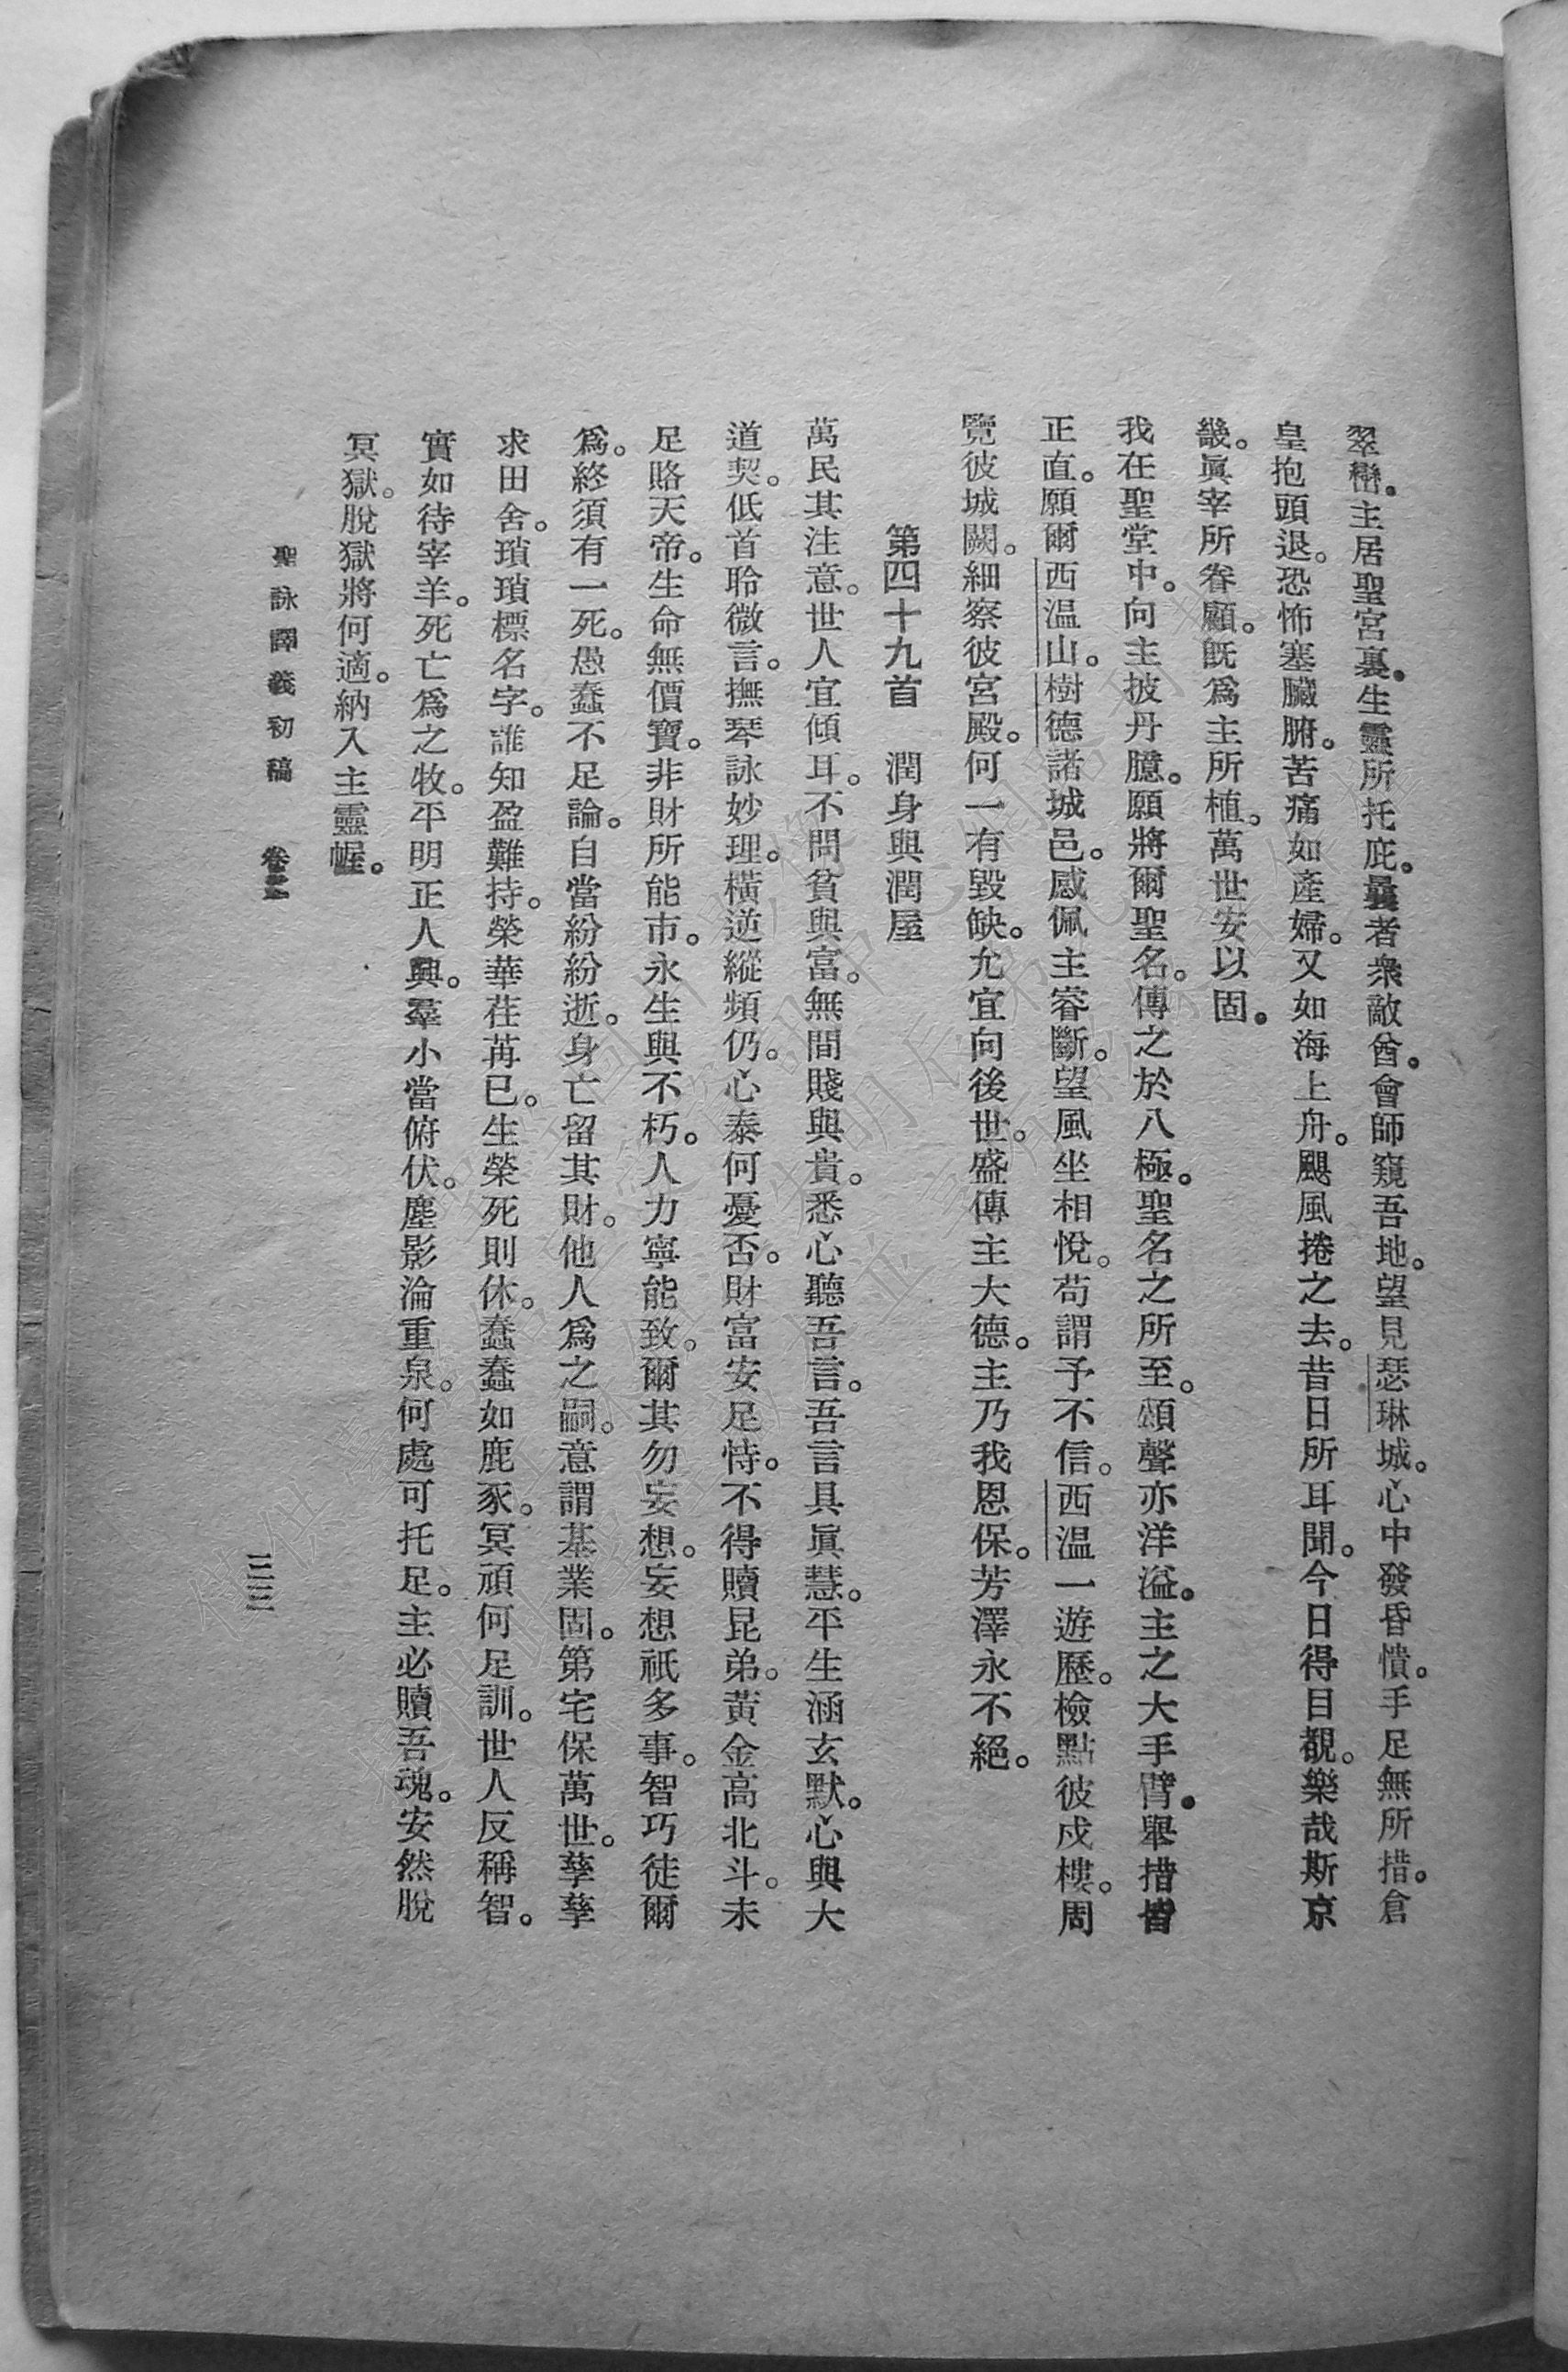 翠巒。主居聖宮裏。生靈所托庇。曩者衆敵酋。會師窺吾地。望見瑟琳城。心中發昏憒。手足無所措。倉
皇抱頭退。恐怖塞臟腑。苦痛如產婦。又如海上舟。颶風捲之去。昔日所耳聞。今日得目覩。樂哉斯京
畿。眞宰所眷顧。旣爲主所植。萬世安以固。
我在聖堂中。向主披丹臆。願將爾聖名。傳之於八極。聖名之所至。頌聲亦洋溢。主之大手臂。舉措皆
正直。願爾西温山。樹德諸城邑。感佩主睿斷。望風坐相悅。苟謂予不信。西温一遊歷。檢點彼戍樓。周
覽彼城闕。細察彼宮殿。何一有毀缺。允宜向後世。盛傳主大德。主乃我恩保。芳澤永不絕。
第四十九首 潤身與潤屋
萬民其注意。世人宜傾耳。不問貧與富。無間賤與貴。悉心聽吾言。吾言具眞慧。平生涵玄默。心與大
道契。低首聆微言。撫琴詠妙理。橫逆縱頻仍。心泰何憂否。財富安足恃。不得贖昆弟。黃金高北斗。未
足賂天帝。生命無價寶。非財所能市。永生與不朽。人力寧能致。爾其勿妄想。妄想祇多事。智巧徒爾
爲。終須有一死。愚蠢不足論。自當紛紛逝。身亡留其財。他人爲之嗣。意謂基業固。第宅保萬世。孳孳
求田舍。瑣瑣標名字。誰知盈難持。榮華荏苒已。生榮死則休。蠢蠢如鹿豕。冥頑何足訓。世人反稱智。
實如待宰羊。死亡爲之牧。平明正人興。羣小當俯伏。塵影淪重泉。何處可托足。主必贖吾魂。安然脫
冥獄。脫獄將何適。納入主靈幄。
聖詠譯義初稿 卷二
三三